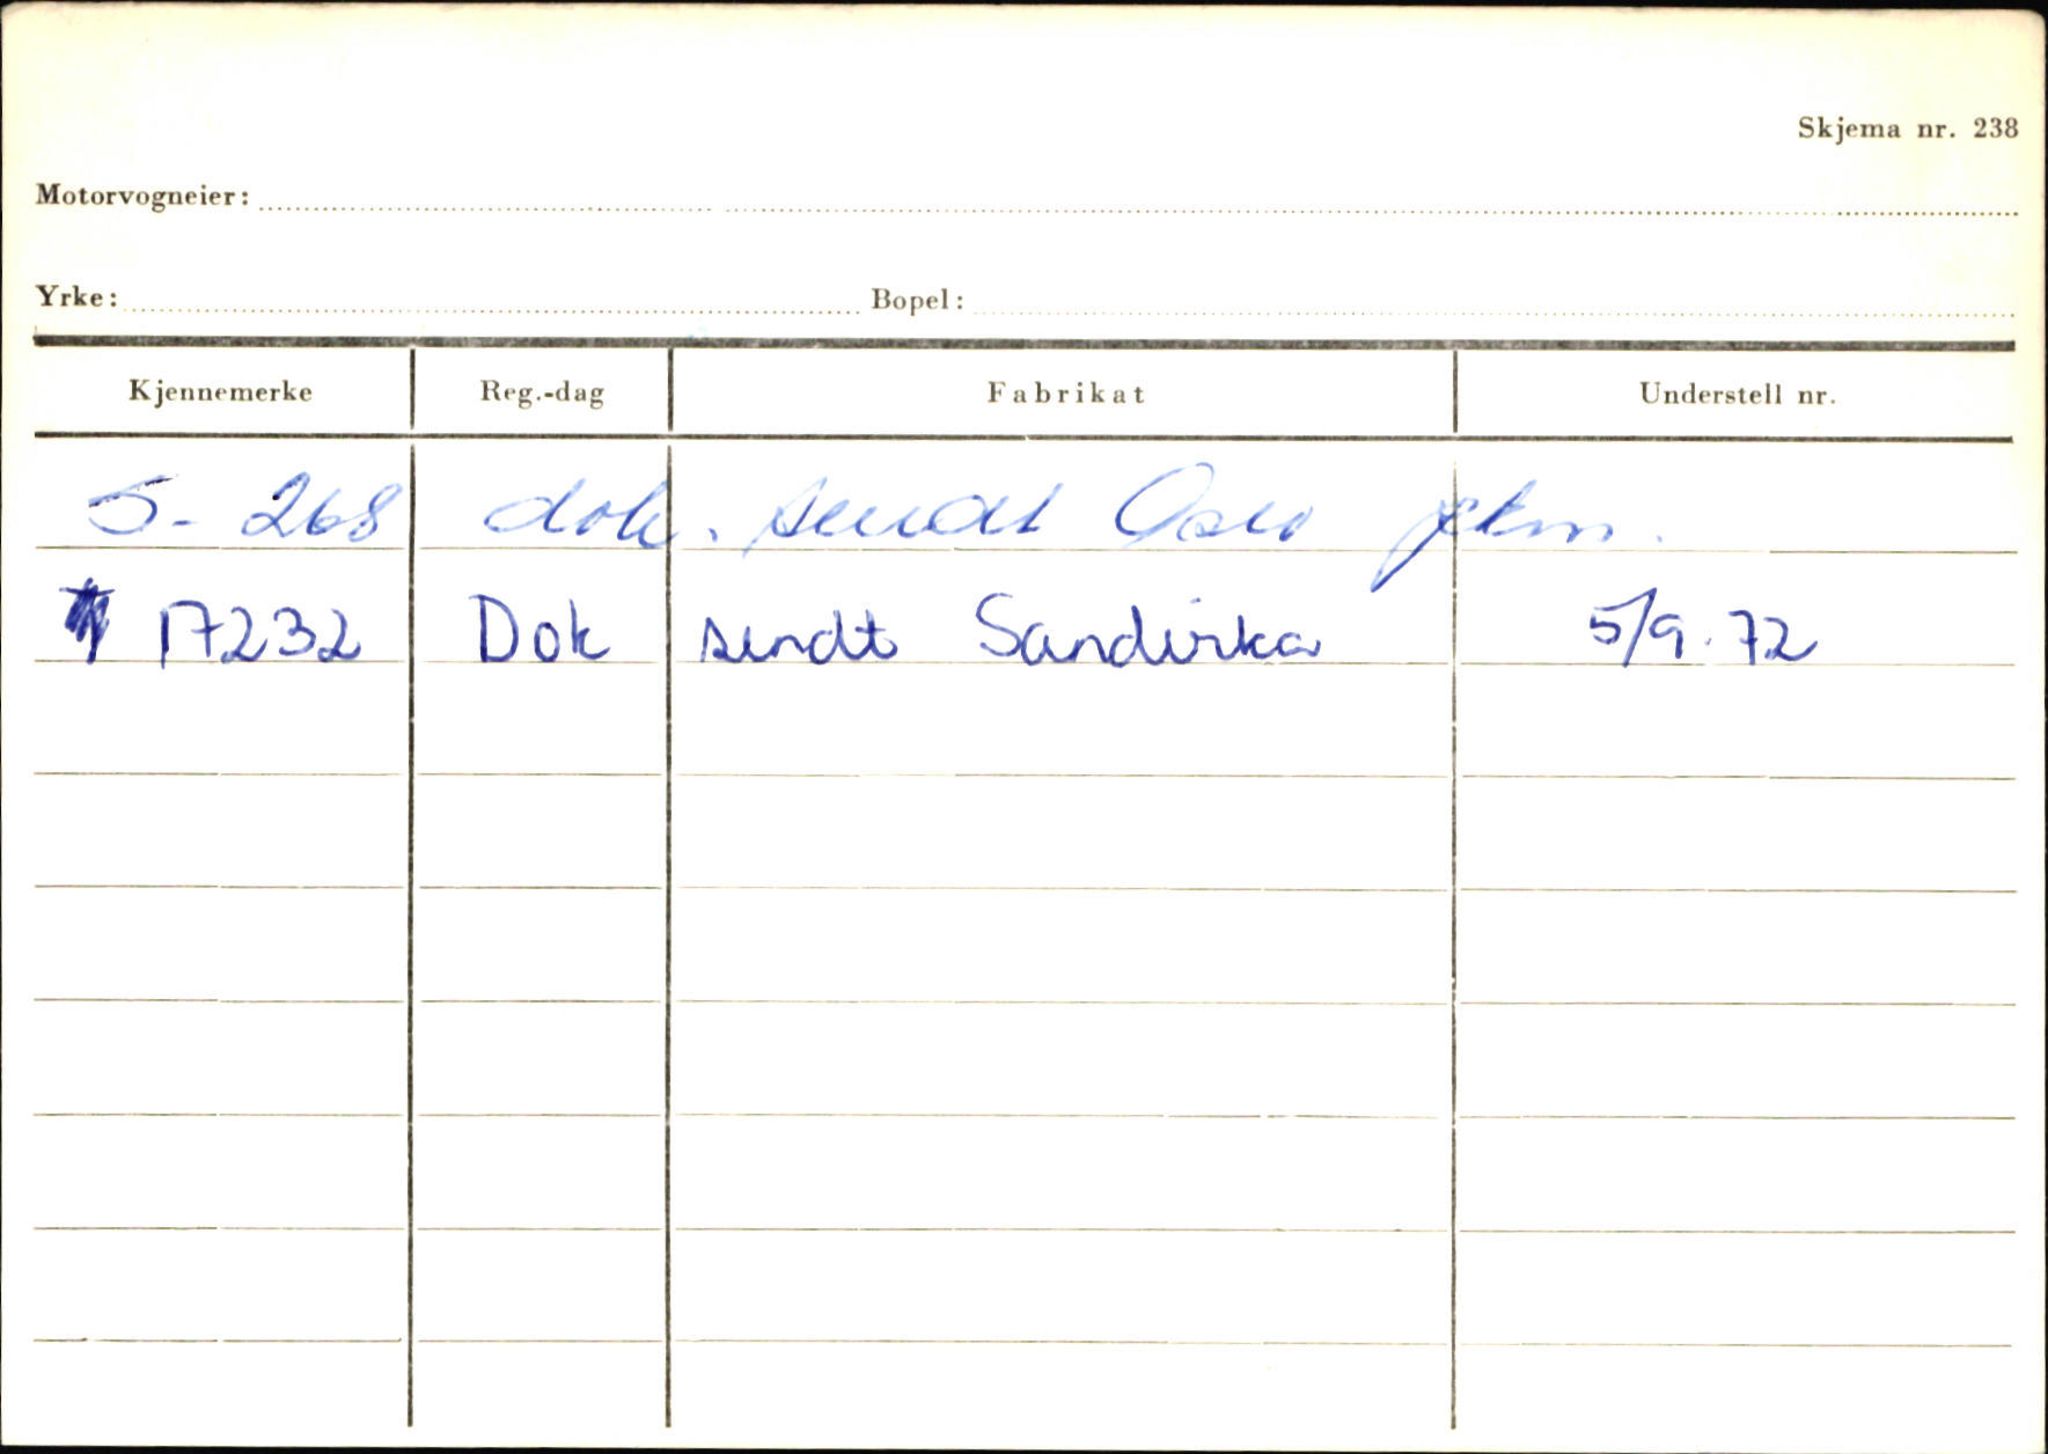 Skjema nr. 238
Motorvogneier:
Yrke: Bopel:
Kjennemerke Reg.-dag Fabrikat Understell nr.
S- 268 dok. sendt Oslo
17232 Dok sendt Sandvika 5/9.72